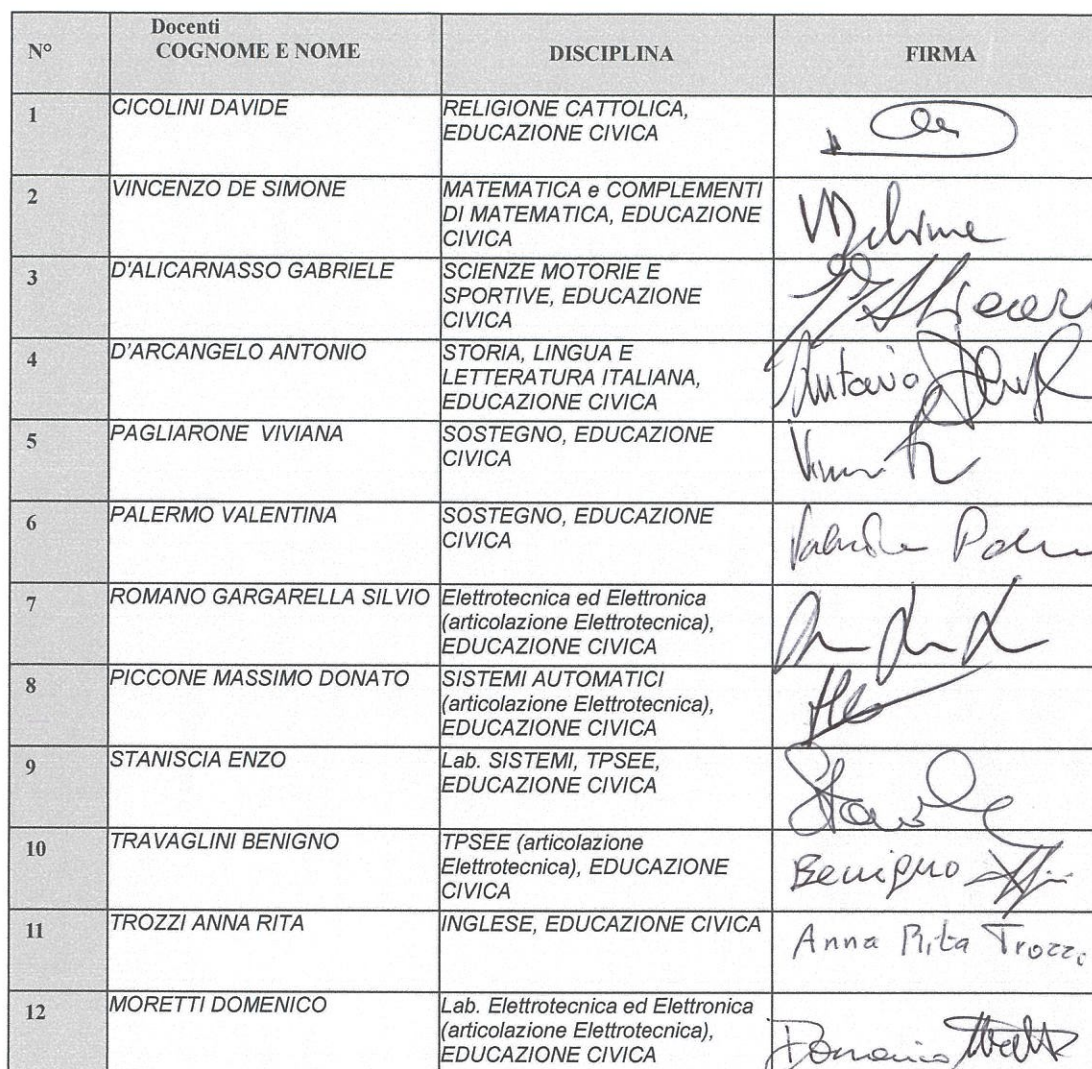 N°
Docenti
COGNOME E NOME
DISCIPLINA
FIRMA
1
CICOLINI DAVIDE
RELIGIONE CATTOLICA,
EDUCAZIONE CIVICA
2
VINCENZO DE SIMONE
MATEMATICA e COMPLEMENTI
DI MATEMATICA, EDUCAZIONE
CIVICA
3
D'ALICARNASSO GABRIELE
SCIENZE MOTORIE E
SPORTIVE, EDUCAZIONE
CIVICA
4
D'ARCANGELO ANTONIO
STORIA, LINGUA E
LETTERATURA ITALIANA,
EDUCAZIONE CIVICA
Antonio
5
PAGLIARONE  VIVIANA
SOSTEGNO, EDUCAZIONE
CIVICA
6
PALERMO VALENTINA
SOSTEGNO, EDUCAZIONE
CIVICA
7
ROMANO GARGARELLA SILVIO
Elettrotecnica ed Elettronica
(articolazione Elettrotecnica),
EDUCAZIONE CIVICA
8
PICCONE MASSIMO DONATO
SISTEMI AUTOMATICI
(articolazione Elettrotecnica),
EDUCAZIONE CIVICA
9
STANISCIA ENZO
Lab. SISTEMI, TPSEE,
EDUCAZIONE CIVICA
10
TRAVAGLINI BENIGNO
TPSEE (articolazione
Elettrotecnica), EDUCAZIONE
CIVICA
Benigno
11
TROZZI ANNA RITA
INGLESE, EDUCAZIONE CIVICA
Anna Rita Trozzi
12
MORETTI DOMENICO
Lab. Elettrotecnica ed Elettronica
(articolazione Elettrotecnica),
EDUCAZIONE CIVICA
Domenico